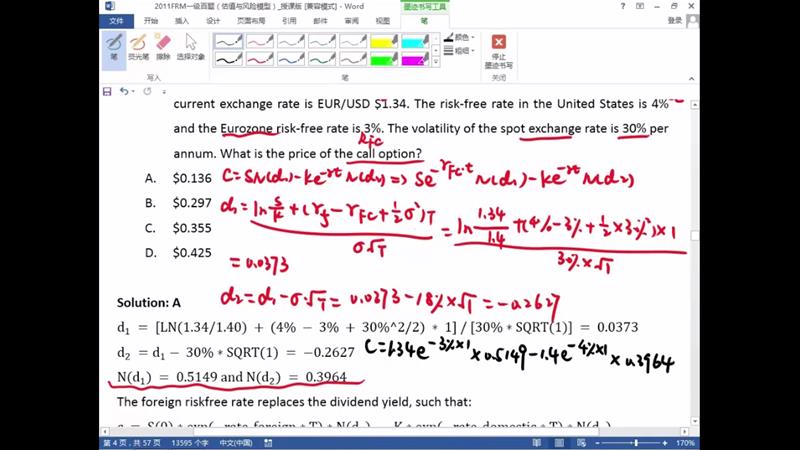 2011FRM一级百题（估值与风险模型）_授课版 [兼容模式] - Word
墨迹书写工具
文件 开始 插入 设计 页面布局 引用 邮件 审阅 视图 笔
登录
笔 荧光笔 擦除 选择对象
颜色
粗细
停止
墨迹书写
写入 笔 关闭
current exchange rate is EUR/USD $1.34. The risk-free rate in the United States is 4%
and the Eurozone risk-free rate is 3%. The volatility of the spot exchange rate is 30% per
RFC
annum. What is the price of the call option?
A. $0.136 C=SN(d₁)-Ke^-rt N(d₂) => Se^-rFC·t N(d₁)-Ke^-rt N(d₂)
B. $0.297
C. $0.355
D. $0.425
= 0.0373
Solution: A
d₂=d₁-σ√T = 0.0373-18%×√T = -0.2627
d₁ = [LN(1.34/1.40) + (4% − 3% + 30%^2/2) * 1] / [30% * SQRT(1)] = 0.0373
d₂ = d₁ − 30% * SQRT(1) = −0.2627
C=1.34e^-3%×1 ×0.5149-1.4e^-4%×1 ×0.3964
N(d₁) = 0.5149 and N(d₂) = 0.3964
The foreign riskfree rate replaces the dividend yield, such that:
第 4 页，共 57 页 13595 个字 中文(中国) 170%